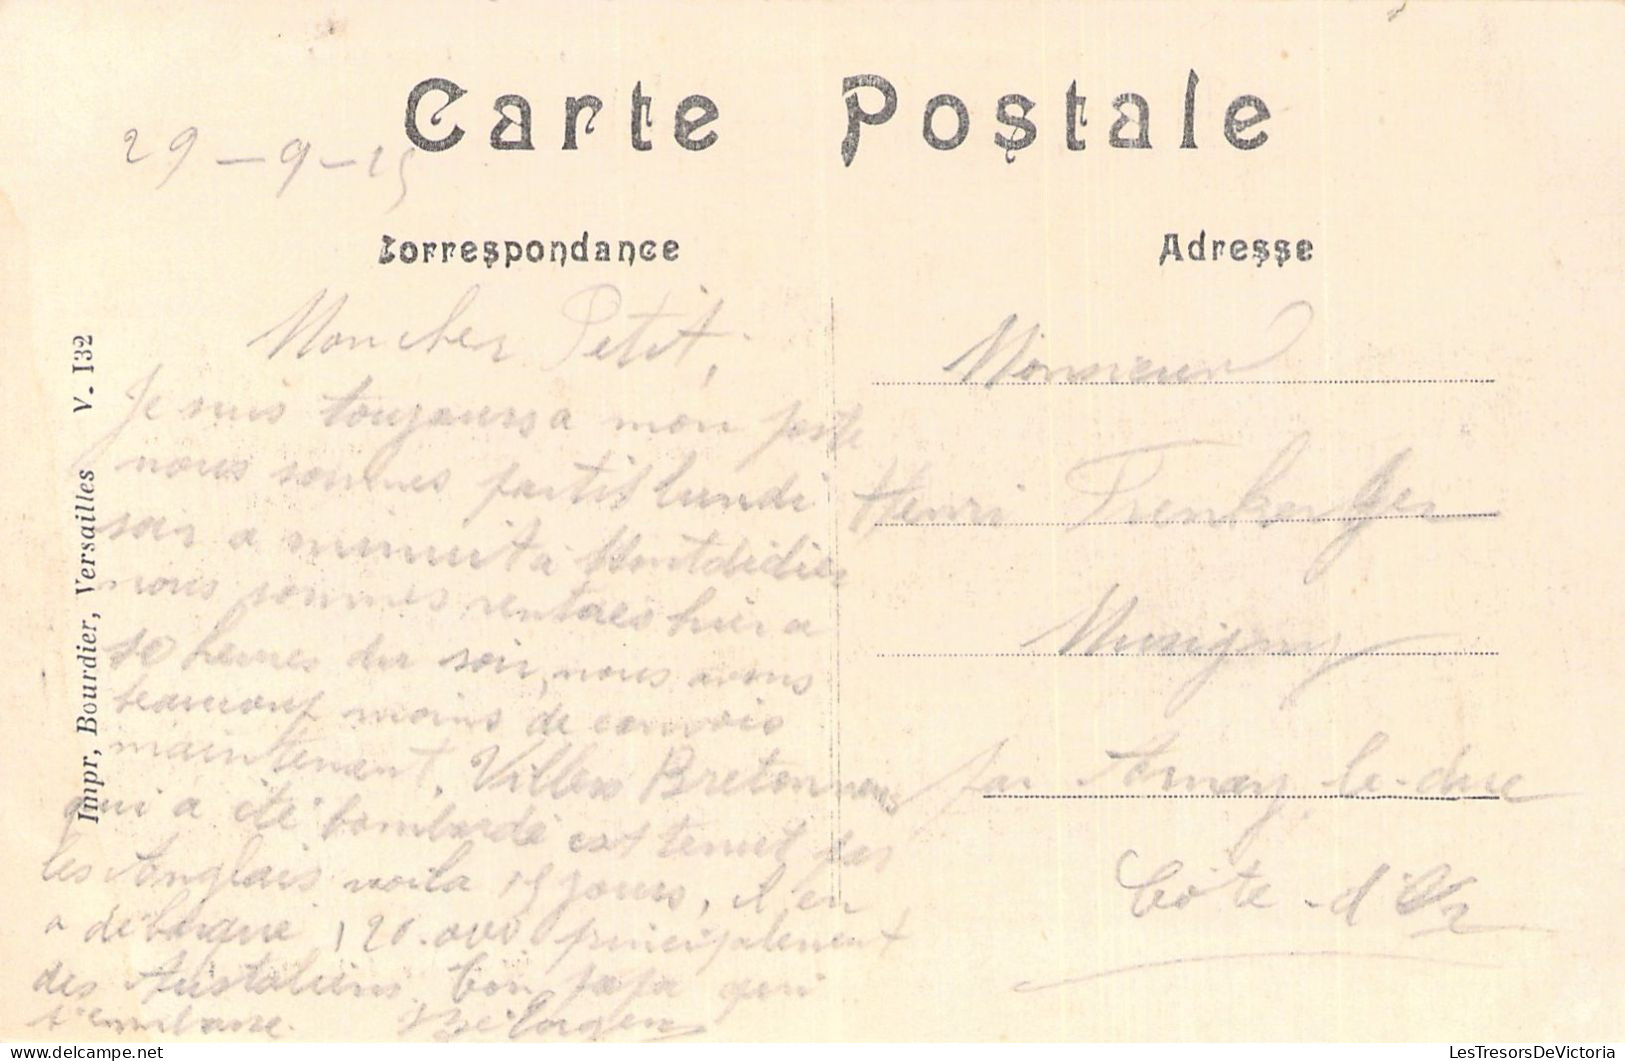 Carte Postale
29-9-15
Correspondance
Mon cher Petit,
Je suis toujours a mon poste
nous sommes partis lundi
soir a minuit à Montdidier
nous sommes rentres hier a
10 heures du soir, nous avons
beaucoup moins de convois
maintenant. Villers Bretonneux
qui a été bombardé est tenut par
les Anglais voila 15 jours, il en
a débarqué 120.000 principalement
des Australiens. Ton papa qui
t'embrasse.
Adresse
Monsieur
Henri
Musigny
par Arnay-le-duc
Côte-d'Or
Impr, Bourdier, Versailles V. 132
LesTresorsDeVictoria.com